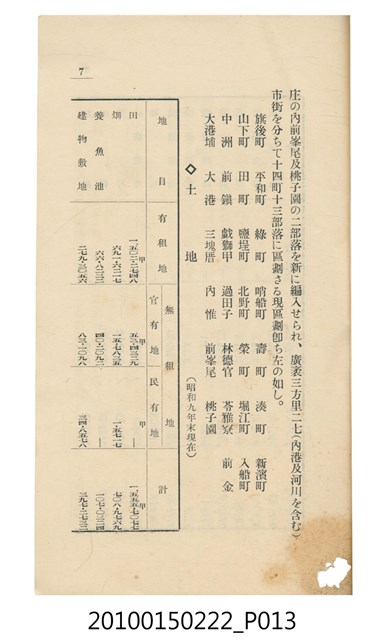 庄の內前峯尾及桃子園の二部落を新に編入せられ、廣袤三方里二七(內港及河川を含む)
市街を分ちて十四町十三部落に區劃さる現區劃卽ち左の如し。
旗後町 平和町 綠町 哨船町 壽町 湊町 新濱町
山下町 田町 鹽埕町 北野町 榮町 堀江町 入船町
中洲 前鎭 戲獅甲 過田子 林德官 苓雅寮 前金
大港埔 大港 三塊厝 內惟 前峯尾 桃子園
◇土地
(昭和九年末現在)
地目 有租地 無租地 官有地 民有地 計
田 一、五〇二・二七四八甲 五三・四三二九 甲 一、五五五・七〇七七
畑 六九一・八二一七 一五・七八三五 一・五七一七 七〇八・九七六九
養魚池 六六・八二三二 四〇・二〇九二 — 一〇七・〇三二四
建物敷地 二七九・三〇五六 八三・一〇九八 三四・八五七八 三九七・二七三二
7
20100150222_P013